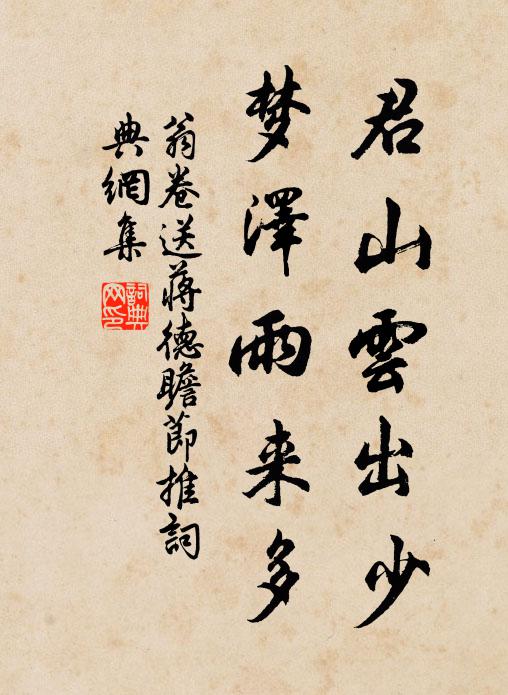 君山雲出少
梦澤雨来多
翁卷送蒋德瞻節推詞
典網集
詞典
网印